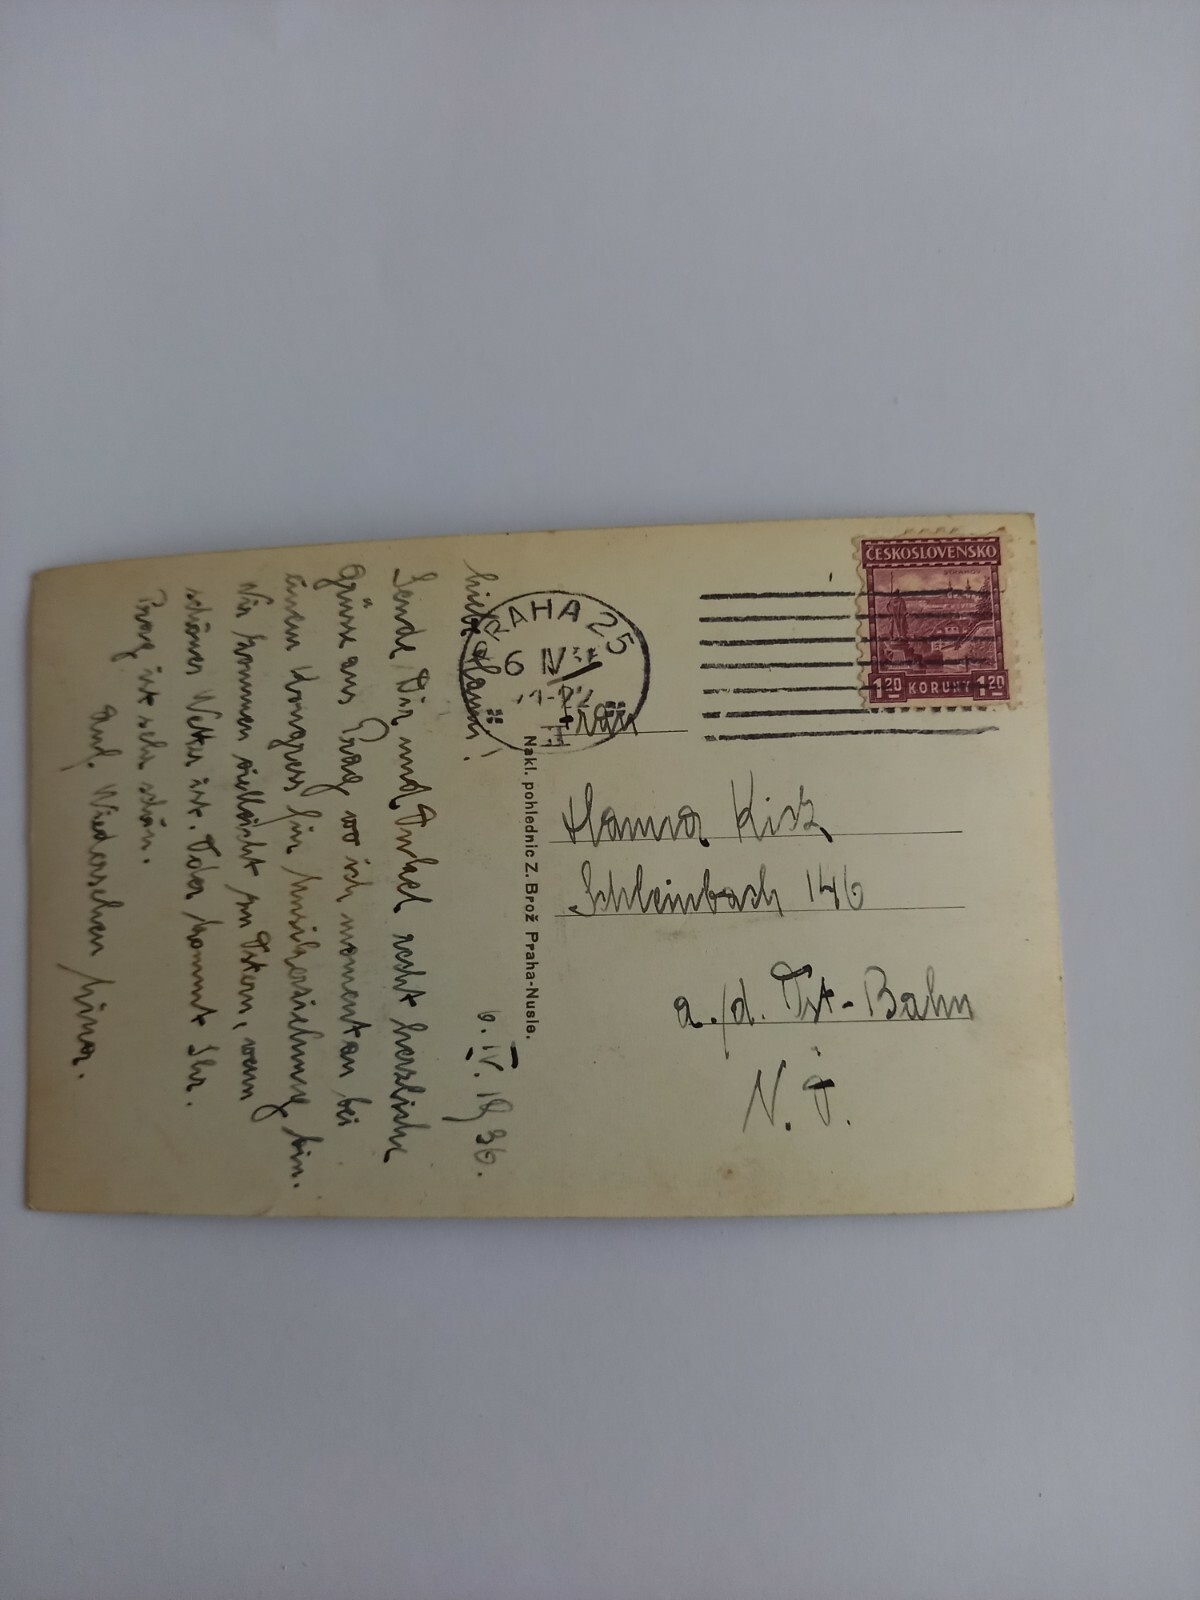 6. IV. 1936.
Liebe Hanna!
Sende Dir und Onkel recht herzliche
Grüsse aus Prag wo ich momentan bei
einem Kongress für Musikerziehung bin.
Wir kommen vielleicht zu Ostern, wenn
schönes Wetter ist. Oder kommt Ihr.
Prag ist sehr schön.
Auf Wiedersehen
Nakl. pohlednic Z. Brož Praha-Nusle.
PRAHA 25
6 IV 36
ČESKOSLOVENSKO
STRAHOV
1 20 KORUNY 1 20
Frau
Hanna
Schleinbach 146
a./d. Ost-Bahn
N. Ö.